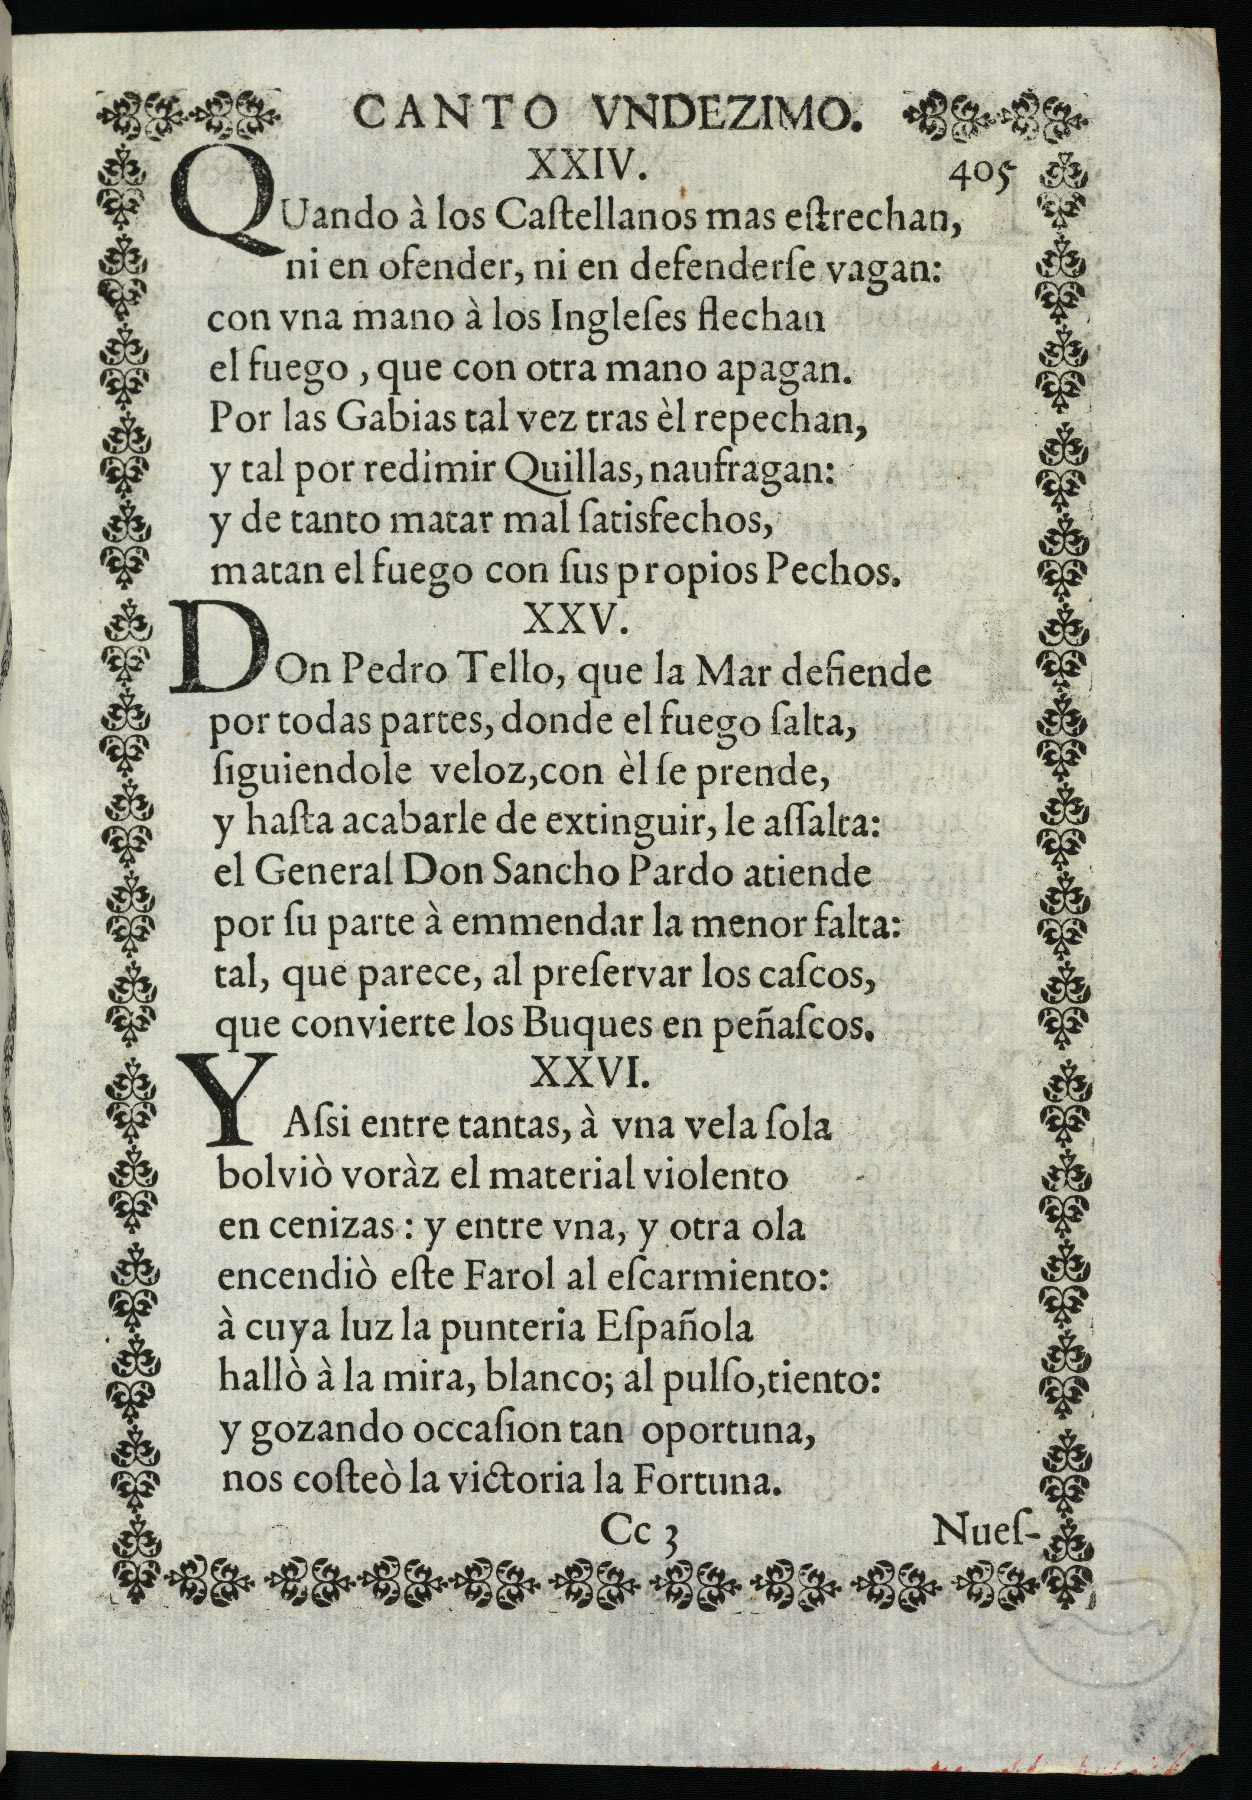 CANTO VNDEZIMO.
XXIV.
405
QUando à los Caſtellanos mas eſtrechan,
ni en ofender, ni en defenderſe vagan:
con vna mano à los Ingleſes flechan
el fuego, que con otra mano apagan.
Por las Gabias tal vez tras èl repechan,
y tal por redimir Quillas, naufragan:
y de tanto matar mal ſatisfechos,
matan el fuego con ſus propios Pechos.
XXV.
DOn Pedro Tello, que la Mar defiende
por todas partes, donde el fuego ſalta,
ſiguiendole veloz, con èl ſe prende,
y haſta acabarle de extinguir, le aſſalta:
el General Don Sancho Pardo atiende
por ſu parte à emmendar la menor falta:
tal, que parece, al preſervar los caſcos,
que convierte los Buques en peñaſcos.
XXVI.
Y Aſsi entre tantas, à vna vela ſola
bolviò voràz el material violento
en cenizas: y entre vna, y otra ola
encendiò eſte Farol al eſcarmiento:
à cuya luz la punteria Eſpañola
hallò à la mira, blanco; al pulſo, tiento:
y gozando occaſion tan oportuna,
nos coſteò la victoria la Fortuna.
Cc 3
Nueſ-